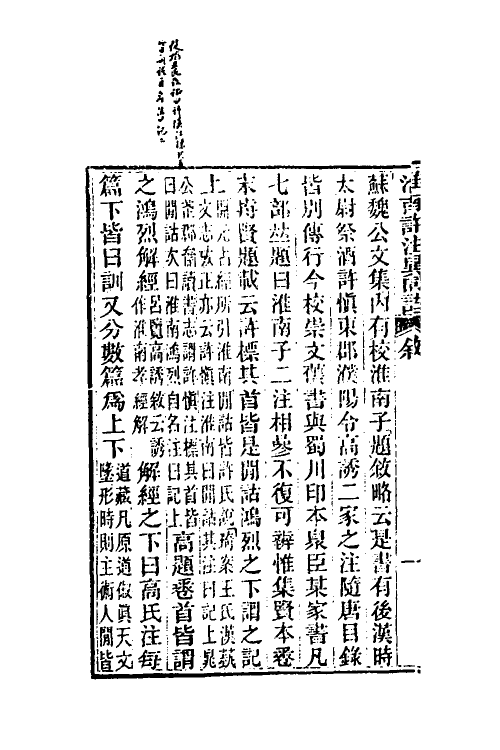 淮南許注異同詁 敘
蘇魏公文集內有校淮南子題敘略云是書有後漢時
太尉祭酒許愼東郡濮陽令高誘二家之注隨唐目錄
皆別傳行今校崇文舊書與蜀川印本曁臣某家書凡
七部並題曰淮南子二注相參不復可辨惟集賢本卷
末前賢題載云許標其首皆是閒詁鴻烈之下謂之記
上開元占經所引淮南閒詁皆許氏說琦案王氏漢藝
文志攷正亦云許愼注淮南曰閒詁其注曰記上晁
公武郡齋讀書志謂許愼注標其首皆
曰閒詁次曰淮南鴻烈自名注曰記上高題卷首皆謂
之鴻烈解經呂覽高誘敘云誘
作淮南孝經解解經之下曰高氏注每
篇下皆曰訓又分數篇爲上下道藏凡原道俶眞天文
墬形時則主術人閒皆
一